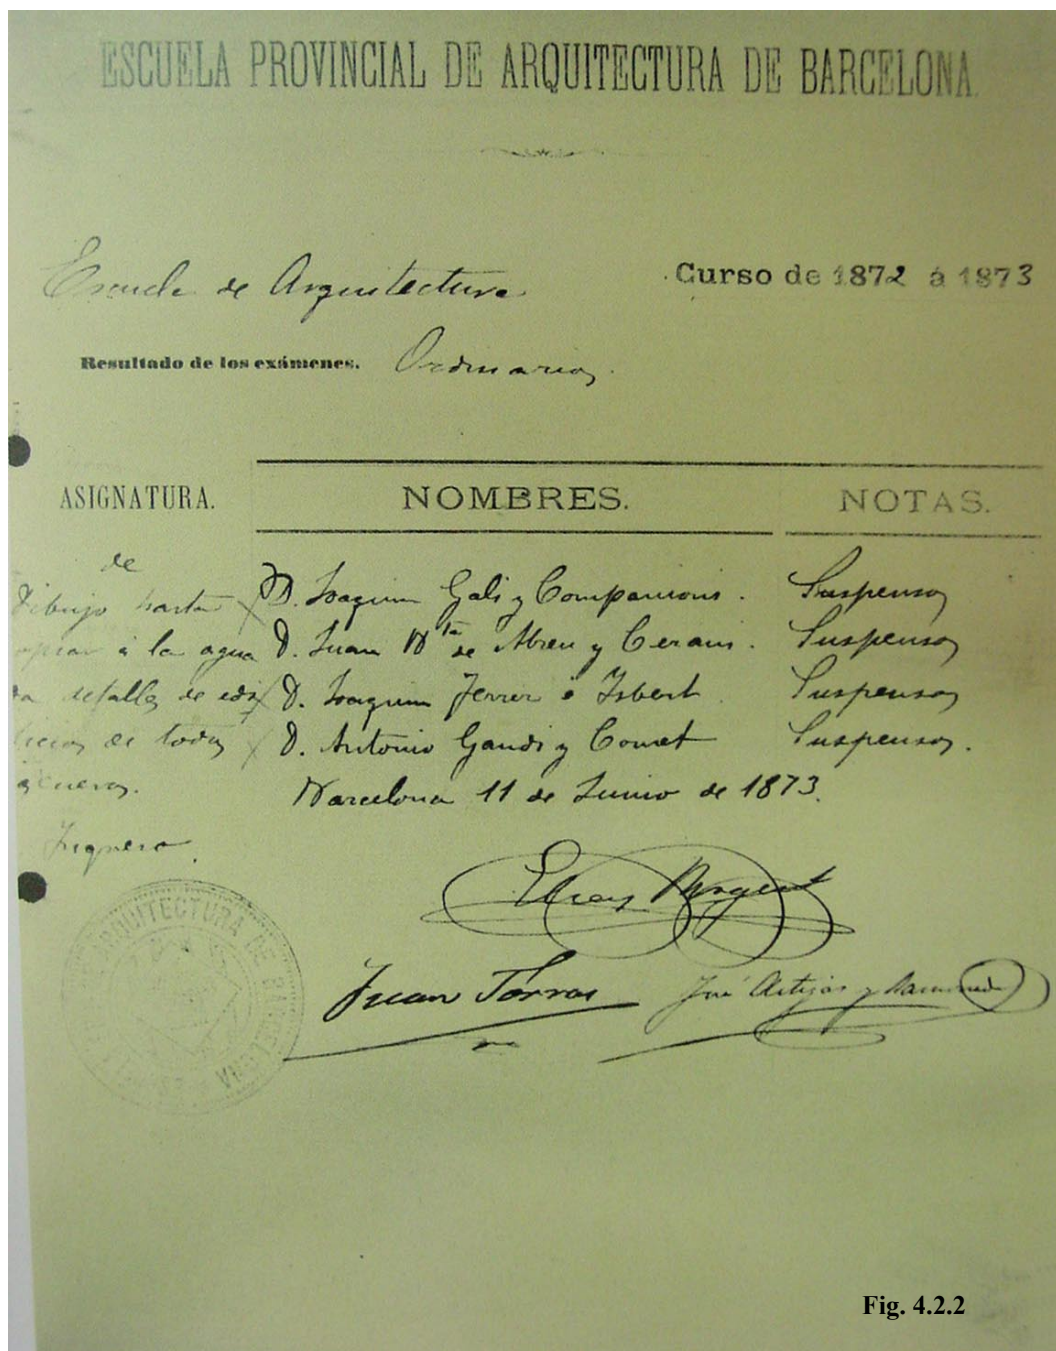 ESCUELA PROVINCIAL DE ARQUITECTURA DE BARCELONA.
Escuela de Arquitectura
Curso de 1872 á 1873
Resultado de los exámenes. Ordinarios.
ASIGNATURA. NOMBRES. NOTAS.
de
Dibujo hasta
copiar á la agua
da detalles de edi
ficios de todos
géneros.
D. Joaquin Gali y Companioni. Suspenso
D. Juan Bta de Abreu y Cerain. Suspenso
D. Joaquin Ferrer é Isbert Suspenso
D. Antonio Gaudi y Cornet Suspenso.
Barcelona 11 de Junio de 1873.
Elias Rogent
Juan Torras José Artigas y Ramoneda
ARQUITECTURA DE BARCELONA
Fig. 4.2.2